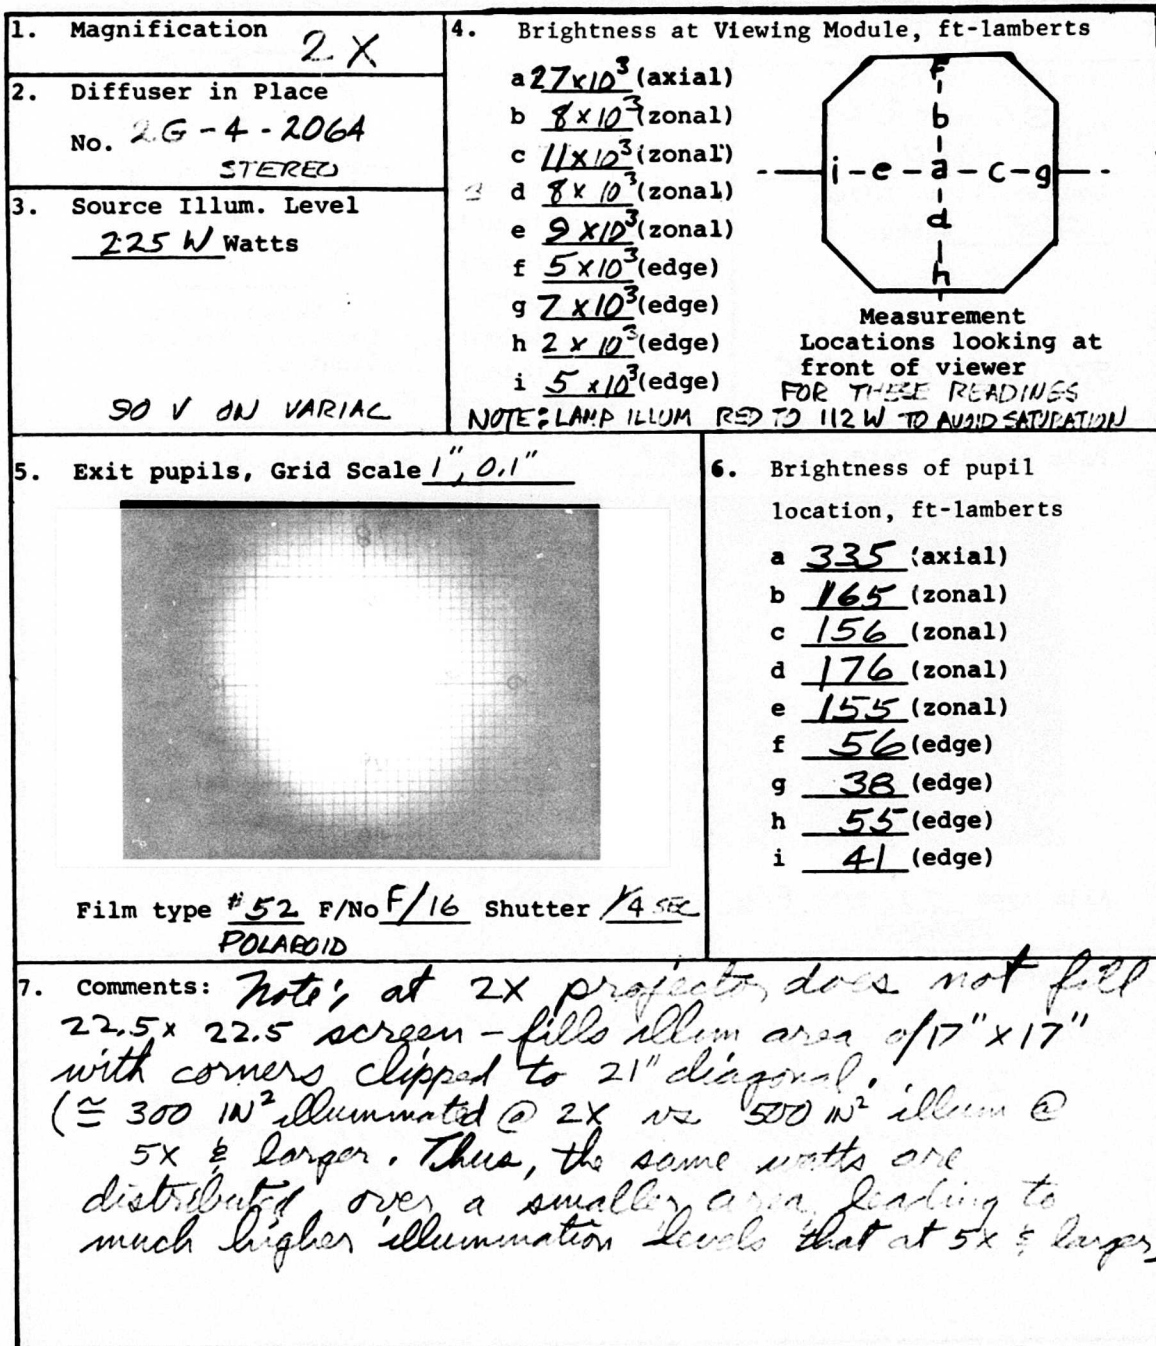 1. Magnification 2X
2. Diffuser in Place
No. 2G-4-206A
STEREO
3. Source Illum. Level
225 W Watts
90 V ON VARIAC
4. Brightness at Viewing Module, ft-lamberts
a 27x10³ (axial)
b 8x10³ (zonal)
c 11x10³ (zonal)
d 8x10³ (zonal)
e 9x10³ (zonal)
f 5x10³ (edge)
g 7x10³ (edge)
h 2x10³ (edge)
i 5x10³ (edge)
f
b
i-e-a-c-g
d
h
Measurement
Locations looking at
front of viewer
FOR THESE READINGS
NOTE: LAMP ILLUM RED TO 112 W TO AVOID SATURATION
5. Exit pupils, Grid Scale 1", 0.1"
Film type #52 F/No F/16 Shutter 1/4 SEC
POLAROID
6. Brightness of pupil
location, ft-lamberts
a 335 (axial)
b 165 (zonal)
c 156 (zonal)
d 176 (zonal)
e 155 (zonal)
f 56 (edge)
g 38 (edge)
h 55 (edge)
i 41 (edge)
7. Comments: Note; at 2X projector does not fill
22.5 x 22.5 screen - fills illum area of 17" x 17"
with corners clipped to 21" diagonal.
(≅ 300 IN² illuminated @ 2X vs 500 IN² illum @
5X & larger. Thus, the same watts are
distributed over a smaller area leading to
much higher illumination levels that at 5X & larger)